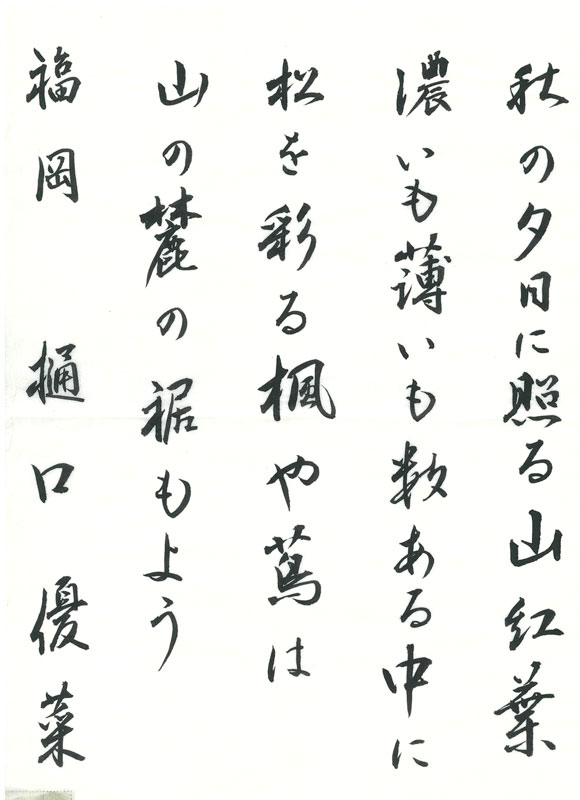 秋の夕日に照る山紅葉
濃いも薄いも数ある中に
松を彩る楓や蔦は
山の麓の裾もよう
福岡 樋口優菜